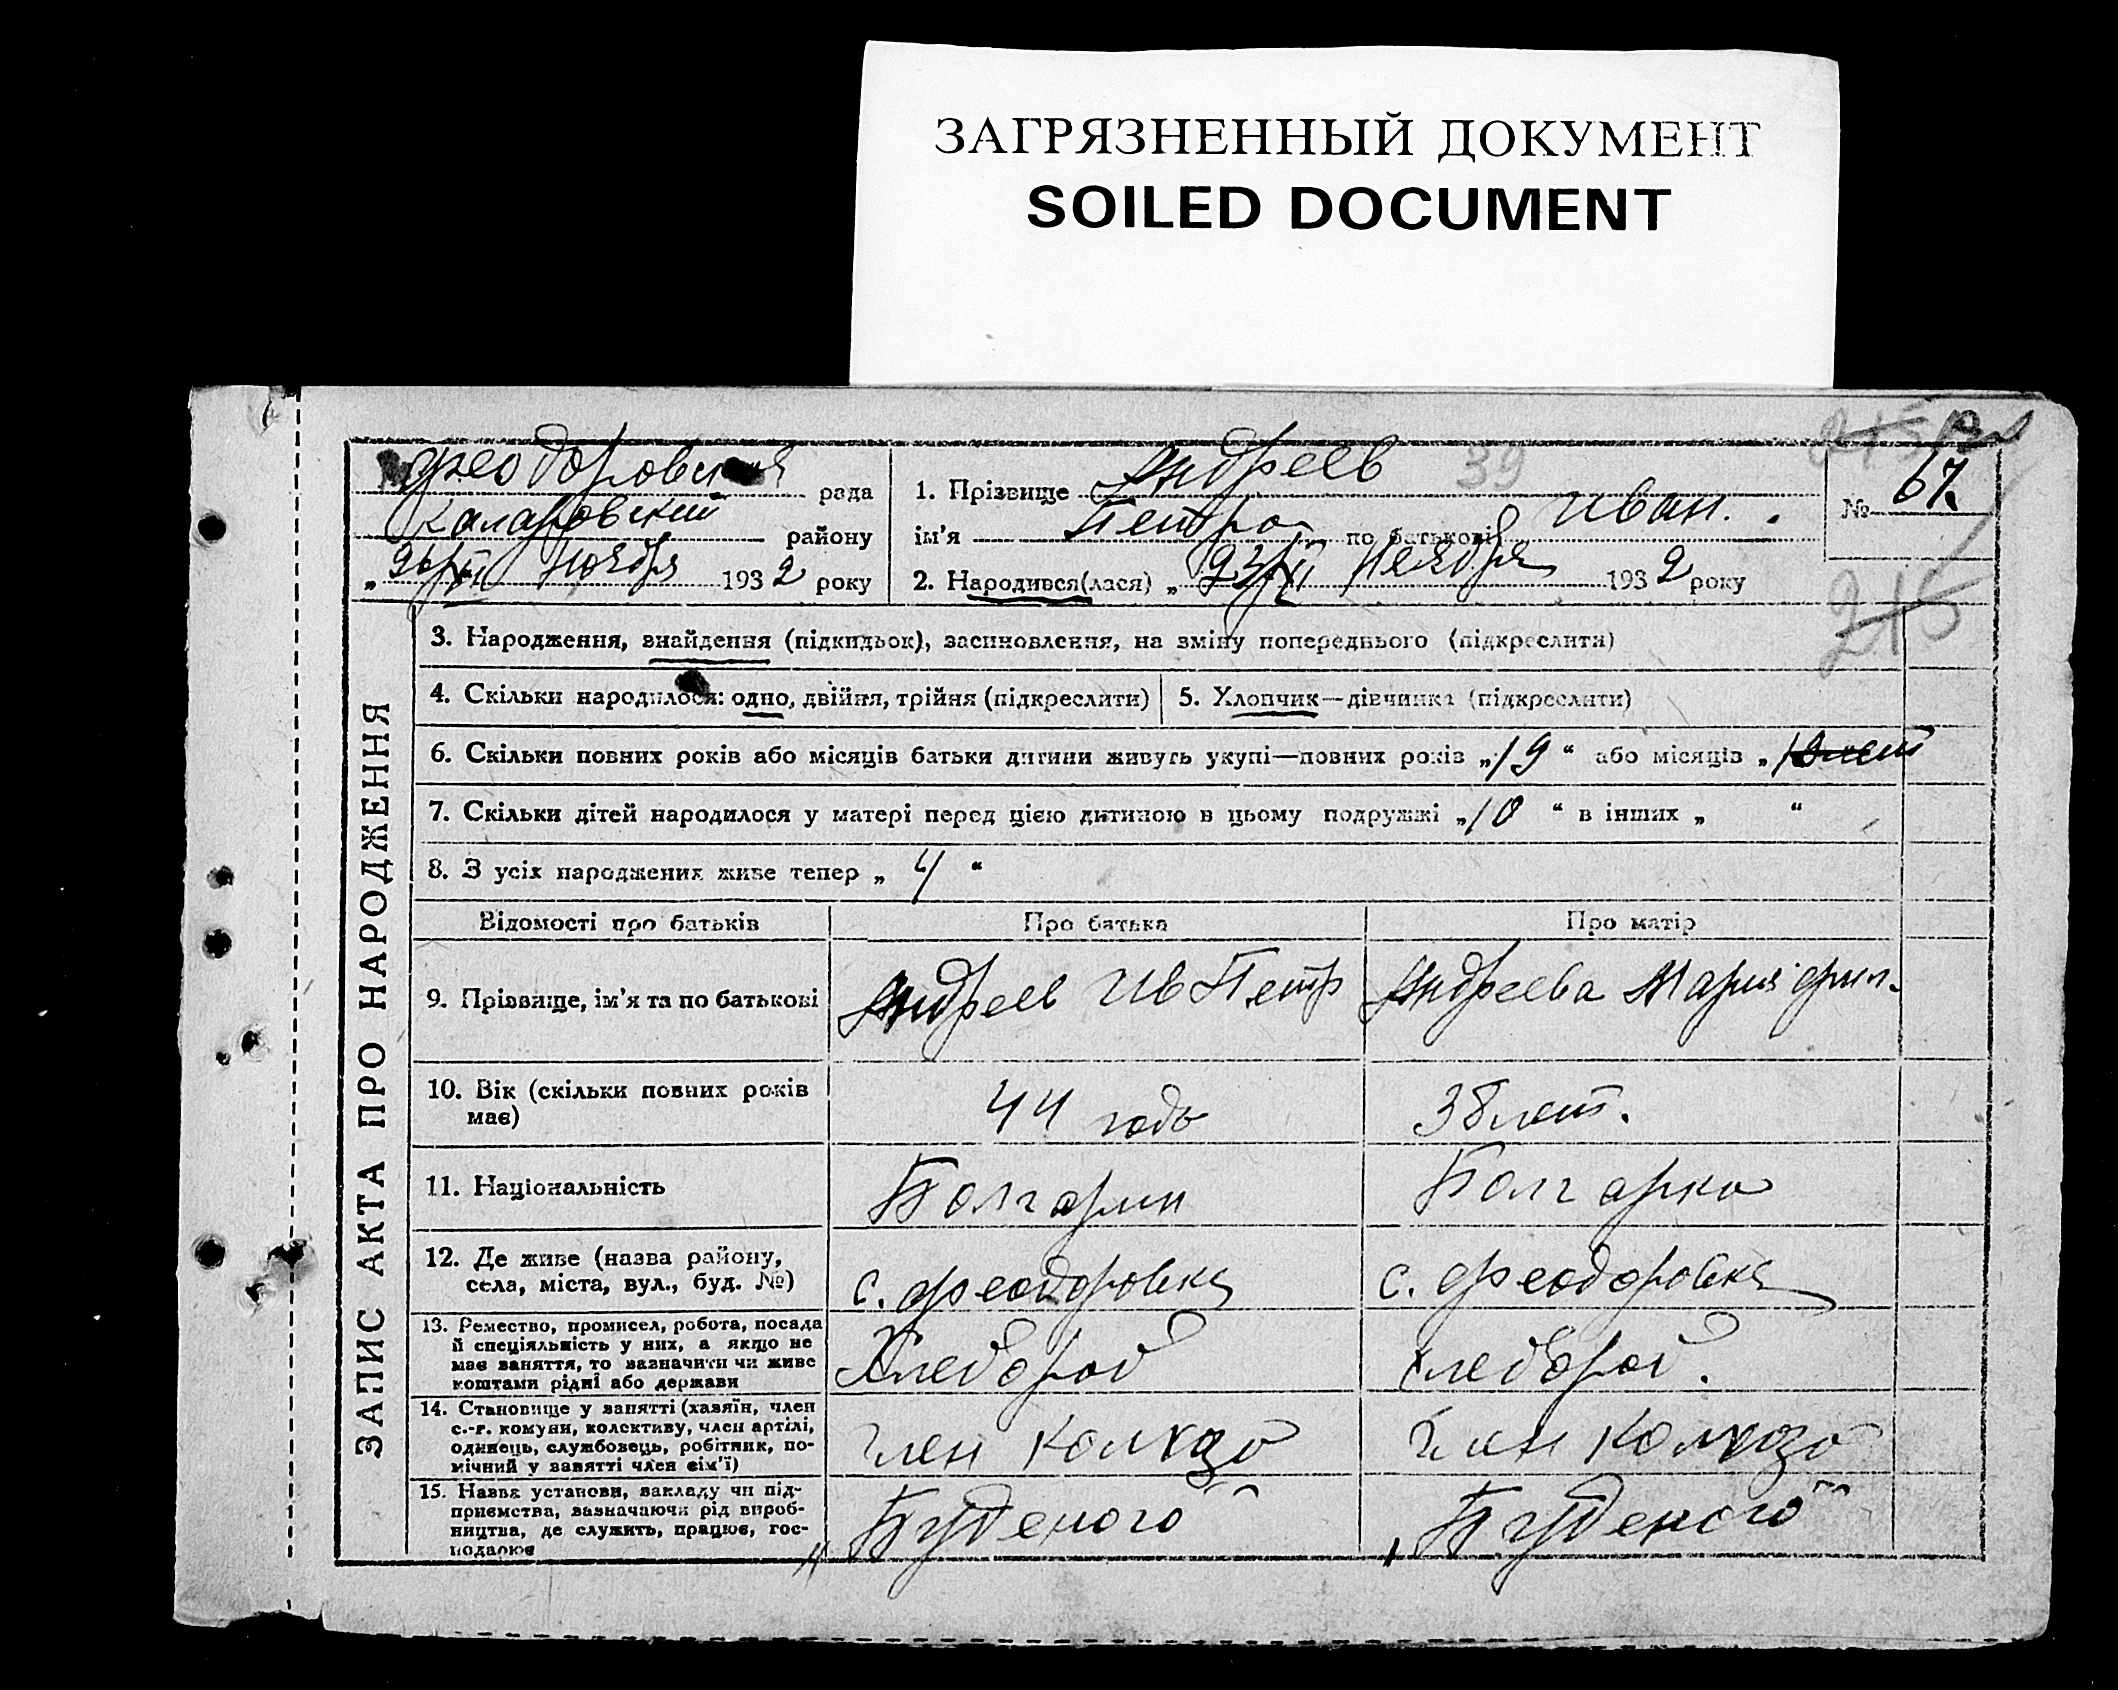 ЗАГРЯЗНЕННЫЙ ДОКУМЕНТ
SOILED DOCUMENT
рада
Коларовский району
„26/XI Ноября 1932 року
1. Прізвище Андреев 39
ім’я Петро по батькові Иван.
2. Народився(лася) „23/XI Ноября 1932 року
№ 67
215
ЗАПИС АКТА ПРО НАРОДЖЕННЯ
3. Народження, знайдення (підкидьок), засиновлення, на зміну попереднього (підкреслити)
4. Скільки народилося: одно, двійня, трійня (підкреслити) 5. Хлопчик—дівчинка (підкреслити)
6. Скільки повних років або місяців батьки дитини живуть укупі—повних років „19“ або місяців „
7. Скільки дітей народилося у матері перед цією дитиною в цьому подружжі „10“ в інших „ “
8. З усіх народжених живе тепер „4“
Відомості про батьків Про батька Про матір
9. Прізвище, ім’я та по батькові Андреев Ив Петр Андреева Мария Фил.
10. Вік (скільки повних років
має) 44 годо 38 лет.
11. Національність Болгарин Болгарка
12. Де живе (назва району,
села, міста, вул., буд. №) с. Феодоровка с. Феодоровка
13. Ремество, промисел, робота, посада
й спеціяльність у них, а якщо не
має заняття, то зазначити чи живе
коштами рідні або держави Хлебороб хлебороб.
14. Становище у занятті (хазяїн, член
с.-г. комуни, колективу, член артілі,
одинець, службовець, робітник, по-
мічний у занятті член сім’ї) член колхоза член колхоза
15. Назва установи, закладу чи під-
приємства, зазначаючи рід вироб-
ництва, де служить, працює, гос-
подарює „Буденого“ „Буденого“